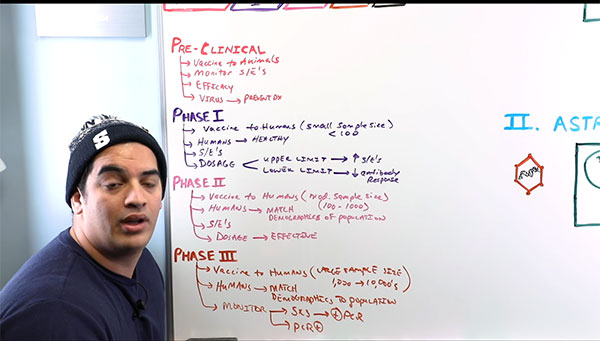 PRE-CLINICAL
→ VACCINE TO ANIMALS
→ MONITOR S/E'S
→ EFFICACY
→ VIRUS → PREVENT DX
PHASE I
→ VACCINE TO HUMANS (SMALL SAMPLE SIZE)
< 100
→ HUMANS → HEALTHY
→ S/E'S
→ DOSAGE < UPPER LIMIT → ↑ S/E'S
LOWER LIMIT → ↓ ANTIBODY
RESPONSE
PHASE II
→ VACCINE TO HUMANS (MOD. SAMPLE SIZE)
(100-1000)
→ HUMANS → MATCH
DEMOGRAPHICS OF POPULATION
→ S/E'S
→ DOSAGE → EFFECTIVE
PHASE III
→ VACCINE TO HUMANS (LARGE SAMPLE SIZE)
1,000 → 10,000'S
→ HUMANS → MATCH
DEMOGRAPHICS TO POPULATION
→ MONITOR → SXS → ⊕ PCR
→ PCR ⊕
II. ASTR
S